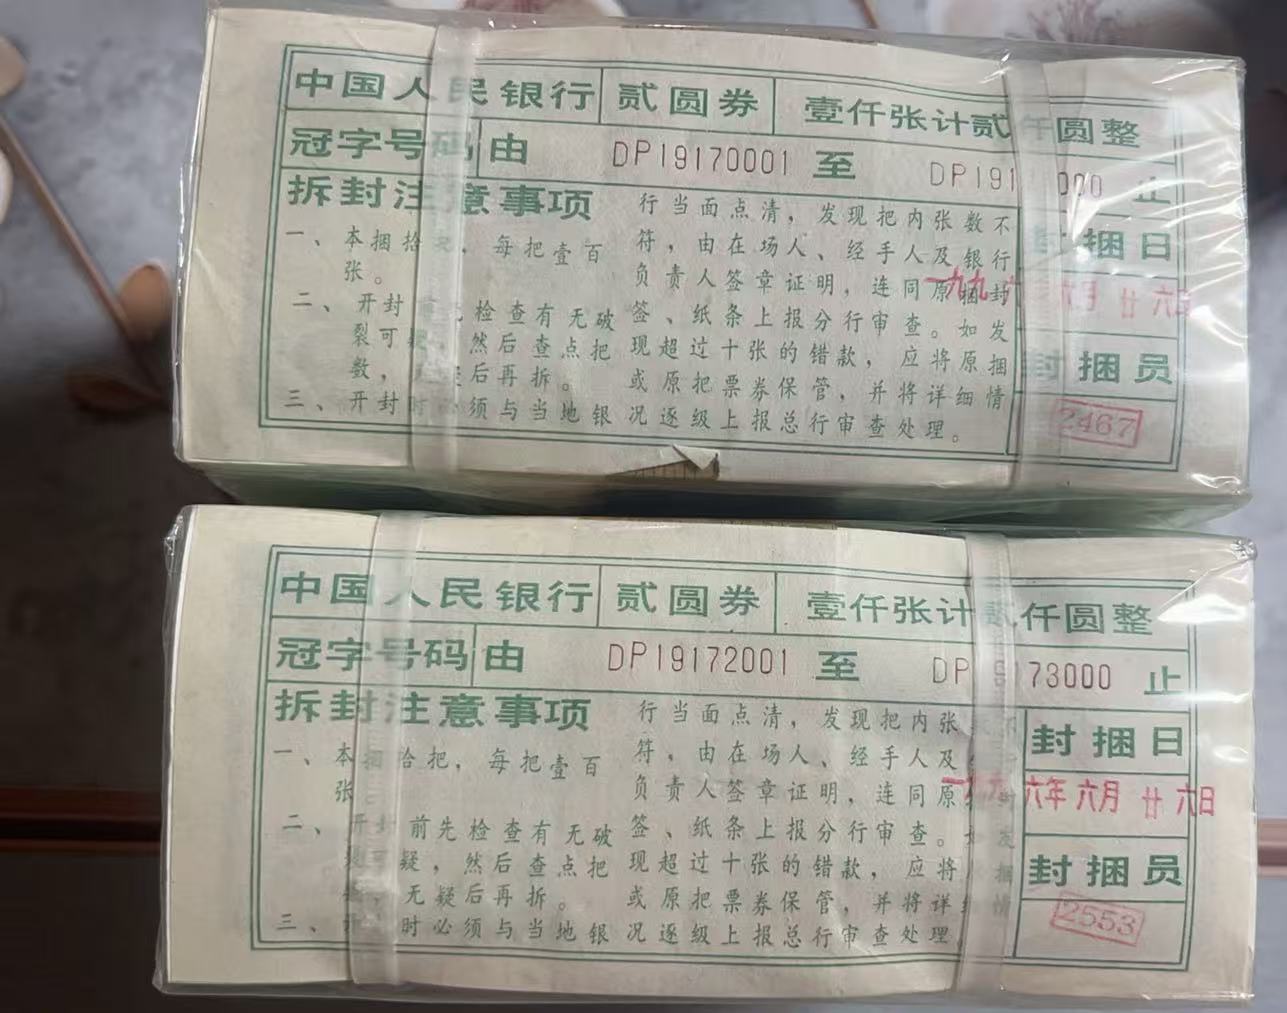 中国人民银行 贰圆券 壹仟张计贰仟圆整
冠字号码 由 DP19170001 至 DP191 000 止
拆封注意事项
一、本捆拾 ，每把壹百
张。
二、开封 先检查有无破
裂可疑，然后查点把
数， 后再拆。
三、开封时必须与当地银
行当面点清，发现把内张数不
符，由在场人、经手人及银行
负责人签章证明，连同原捆封
签、纸条上报分行审查。如发
现超过十张的错款，应将原捆
或原把票券保管，并将详细情
况逐级上报总行审查处理。
封捆日
一九九 六月 廿六日
封捆员
2467
中国人民银行 贰圆券 壹仟张计贰仟圆整
冠字号码 由 DP19172001 至 DP 173000 止
拆封注意事项
一、本捆拾把，每把壹百
张
二、开封前先检查有无破
疑，然后查点把
，无疑后再拆。
三、开 时必须与当地银
行当面点清，发现把内张
符，由在场人、经手人及
负责人签章证明，连同原 封
签、纸条上报分行审查。如发
现超过十张的错款，应将 捆
或原把票券保管，并将详 情
况逐级上报总行审查处理
封捆日
一九九六年六月廿六日
封捆员
2553